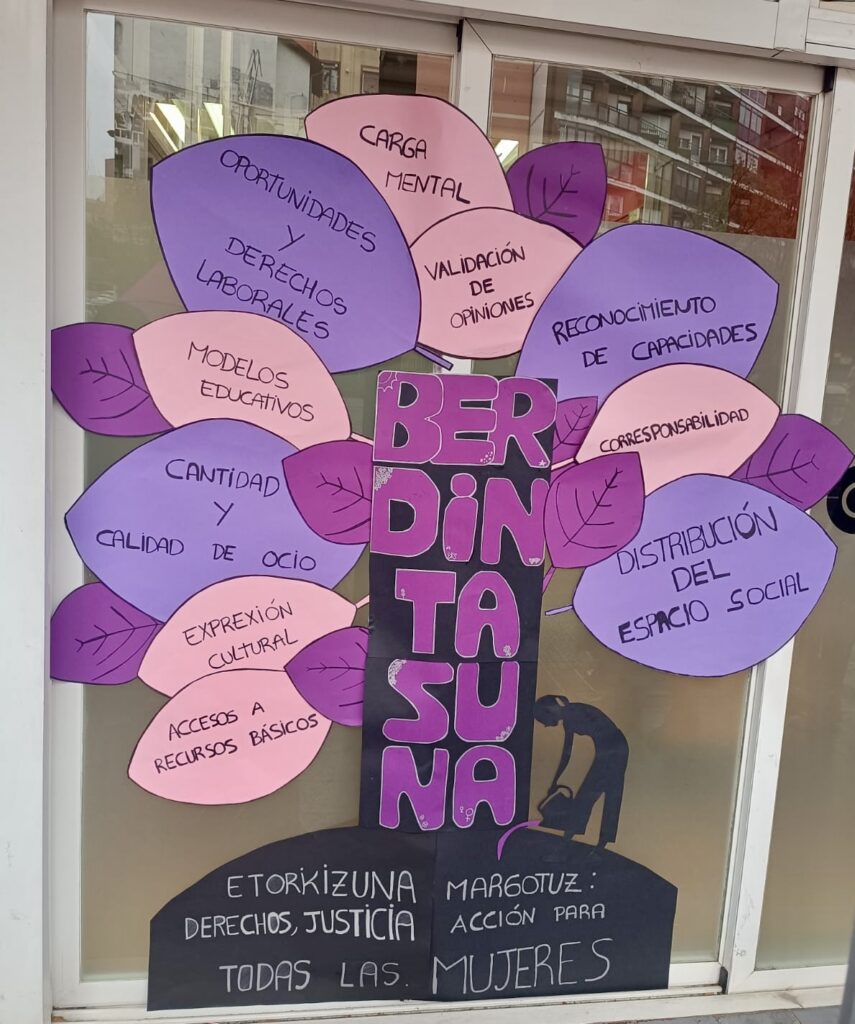 CARGA
MENTAL
OPORTUNIDADES
Y
DERECHOS
LABORALES
VALIDACIÓN
DE
OPINIONES
RECONOCIMIENTO
DE CAPACIDADES
MODELOS
EDUCATIVOS
CORRESPONSABILIDAD
CANTIDAD
Y
CALIDAD DE OCIO
DISTRIBUCIÓN
DEL
ESPACIO SOCIAL
EXPREXIÓN
CULTURAL
ACCESOS A
RECURSOS BÁSICOS
BER
DIN
TA
SU
NA
ETORKIZUNA MARGOTUZ:
DERECHOS, JUSTICIA ACCIÓN PARA
TODAS LAS. MUJERES